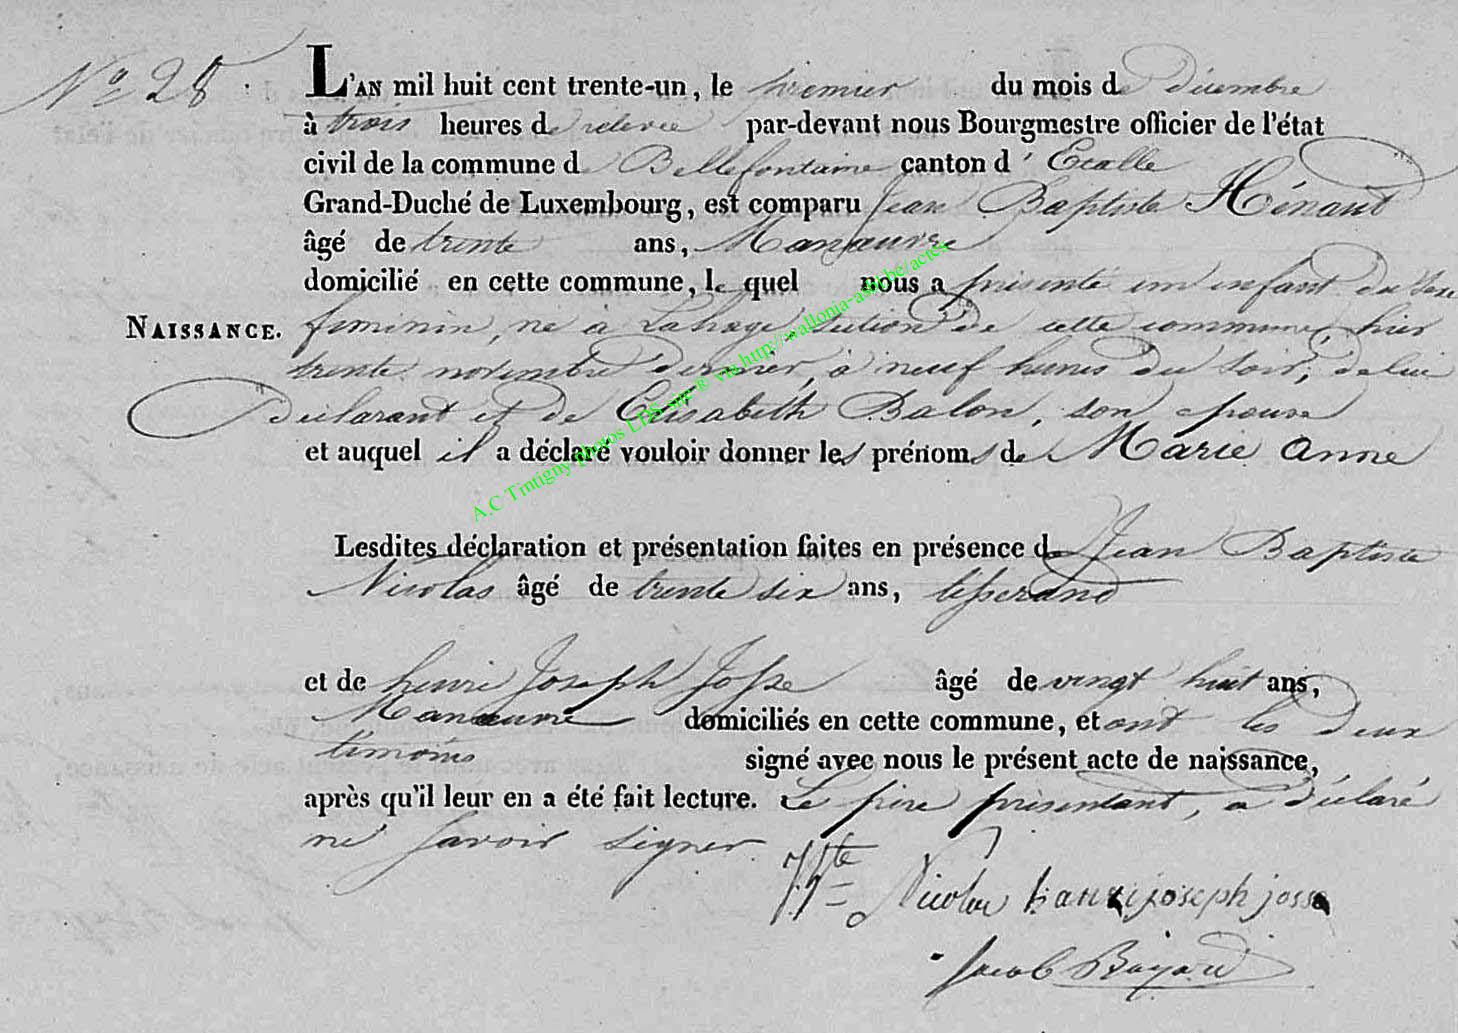 N° 28. L'AN mil huit cent trente-un, le premier du mois de décembre
à trois heures de relevée par-devant nous Bourgmestre officier de l'état
civil de la commune de Bellefontaine canton d'Etalle
Grand-Duché de Luxembourg, est comparu Jean Baptiste Hénaut
âgé de trente ans, Manœuvre
domicilié en cette commune, lequel nous a présenté un enfant du sexe
NAISSANCE. féminin, né à Lahage, section de cette commune, hier
trente novembre dernier, à neuf heures du soir, de lui
déclarant et de Elisabeth Balon, son épouse
et auquel il a déclaré vouloir donner les prénoms de Marie Anne
A.C Tintigny photos LDS site® via http://wallonia-asbl.be/actes
Lesdites déclaration et présentation faites en présence de Jean Baptiste
Nicolas âgé de trente six ans, tisserand
et de henri Joseph Josse âgé de vingt huit ans,
Manœuvre domiciliés en cette commune, et ont les deux
témoins signé avec nous le présent acte de naissance,
après qu'il leur en a été fait lecture. Le père présentant, a déclaré
ne savoir signer.
Nicolas hanri joseph josse
Jacob Bayard